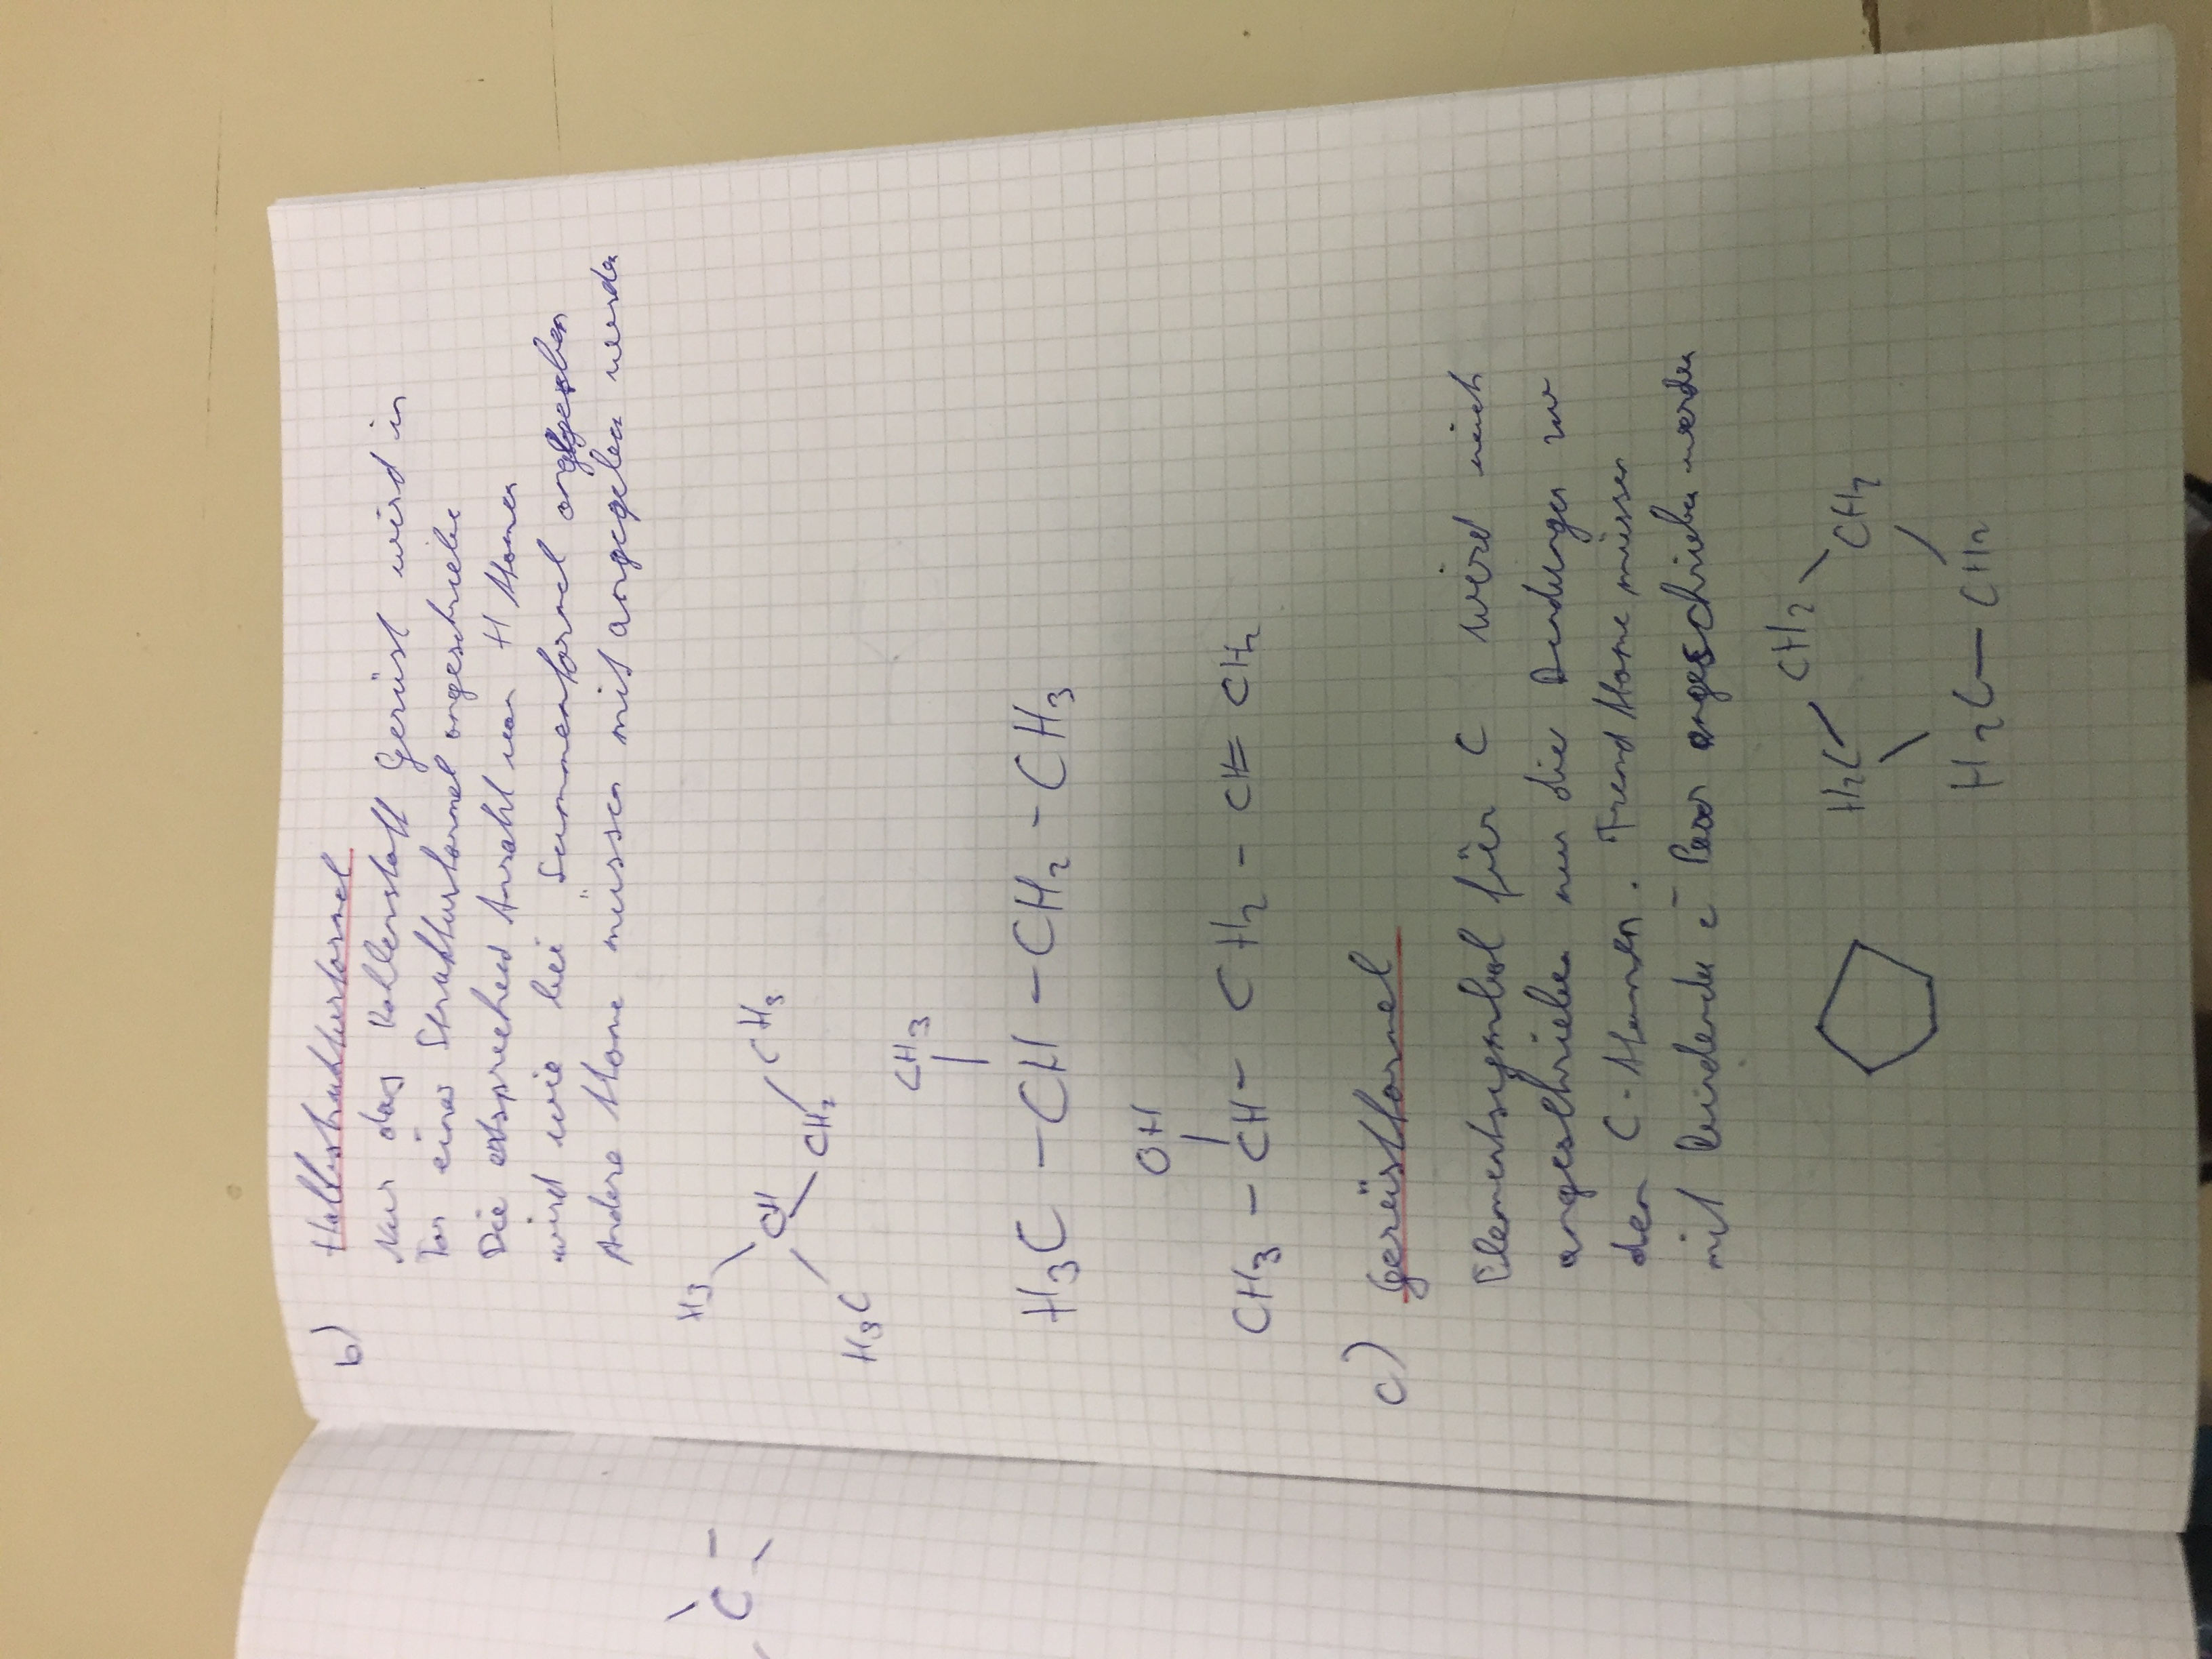 b) Halbstrukturformel
Nur das Kohlenstoff Gerüst wird in
For einer Strukturformel angeschriebe
Die entsprechend Anzahl von H Atomen
wird wie bei Summenformel angegeben
Andere Atome müssen mit angegeben werden
H3
CH
CH3
CH2
H3C
C
CH3
H3C - CH - CH2 - CH3
OH
CH3 - CH - CH2 - CH = CH2
c) Gerüstformel
Elementsymbol für C wird nich
angeschrieben nur die Bindungen zw
den C-Atomen. Fremd Atome müssen
mit bindende e⁻ Paar angeschrieben werden
CH2
H2C
CH2
H2C — CH2